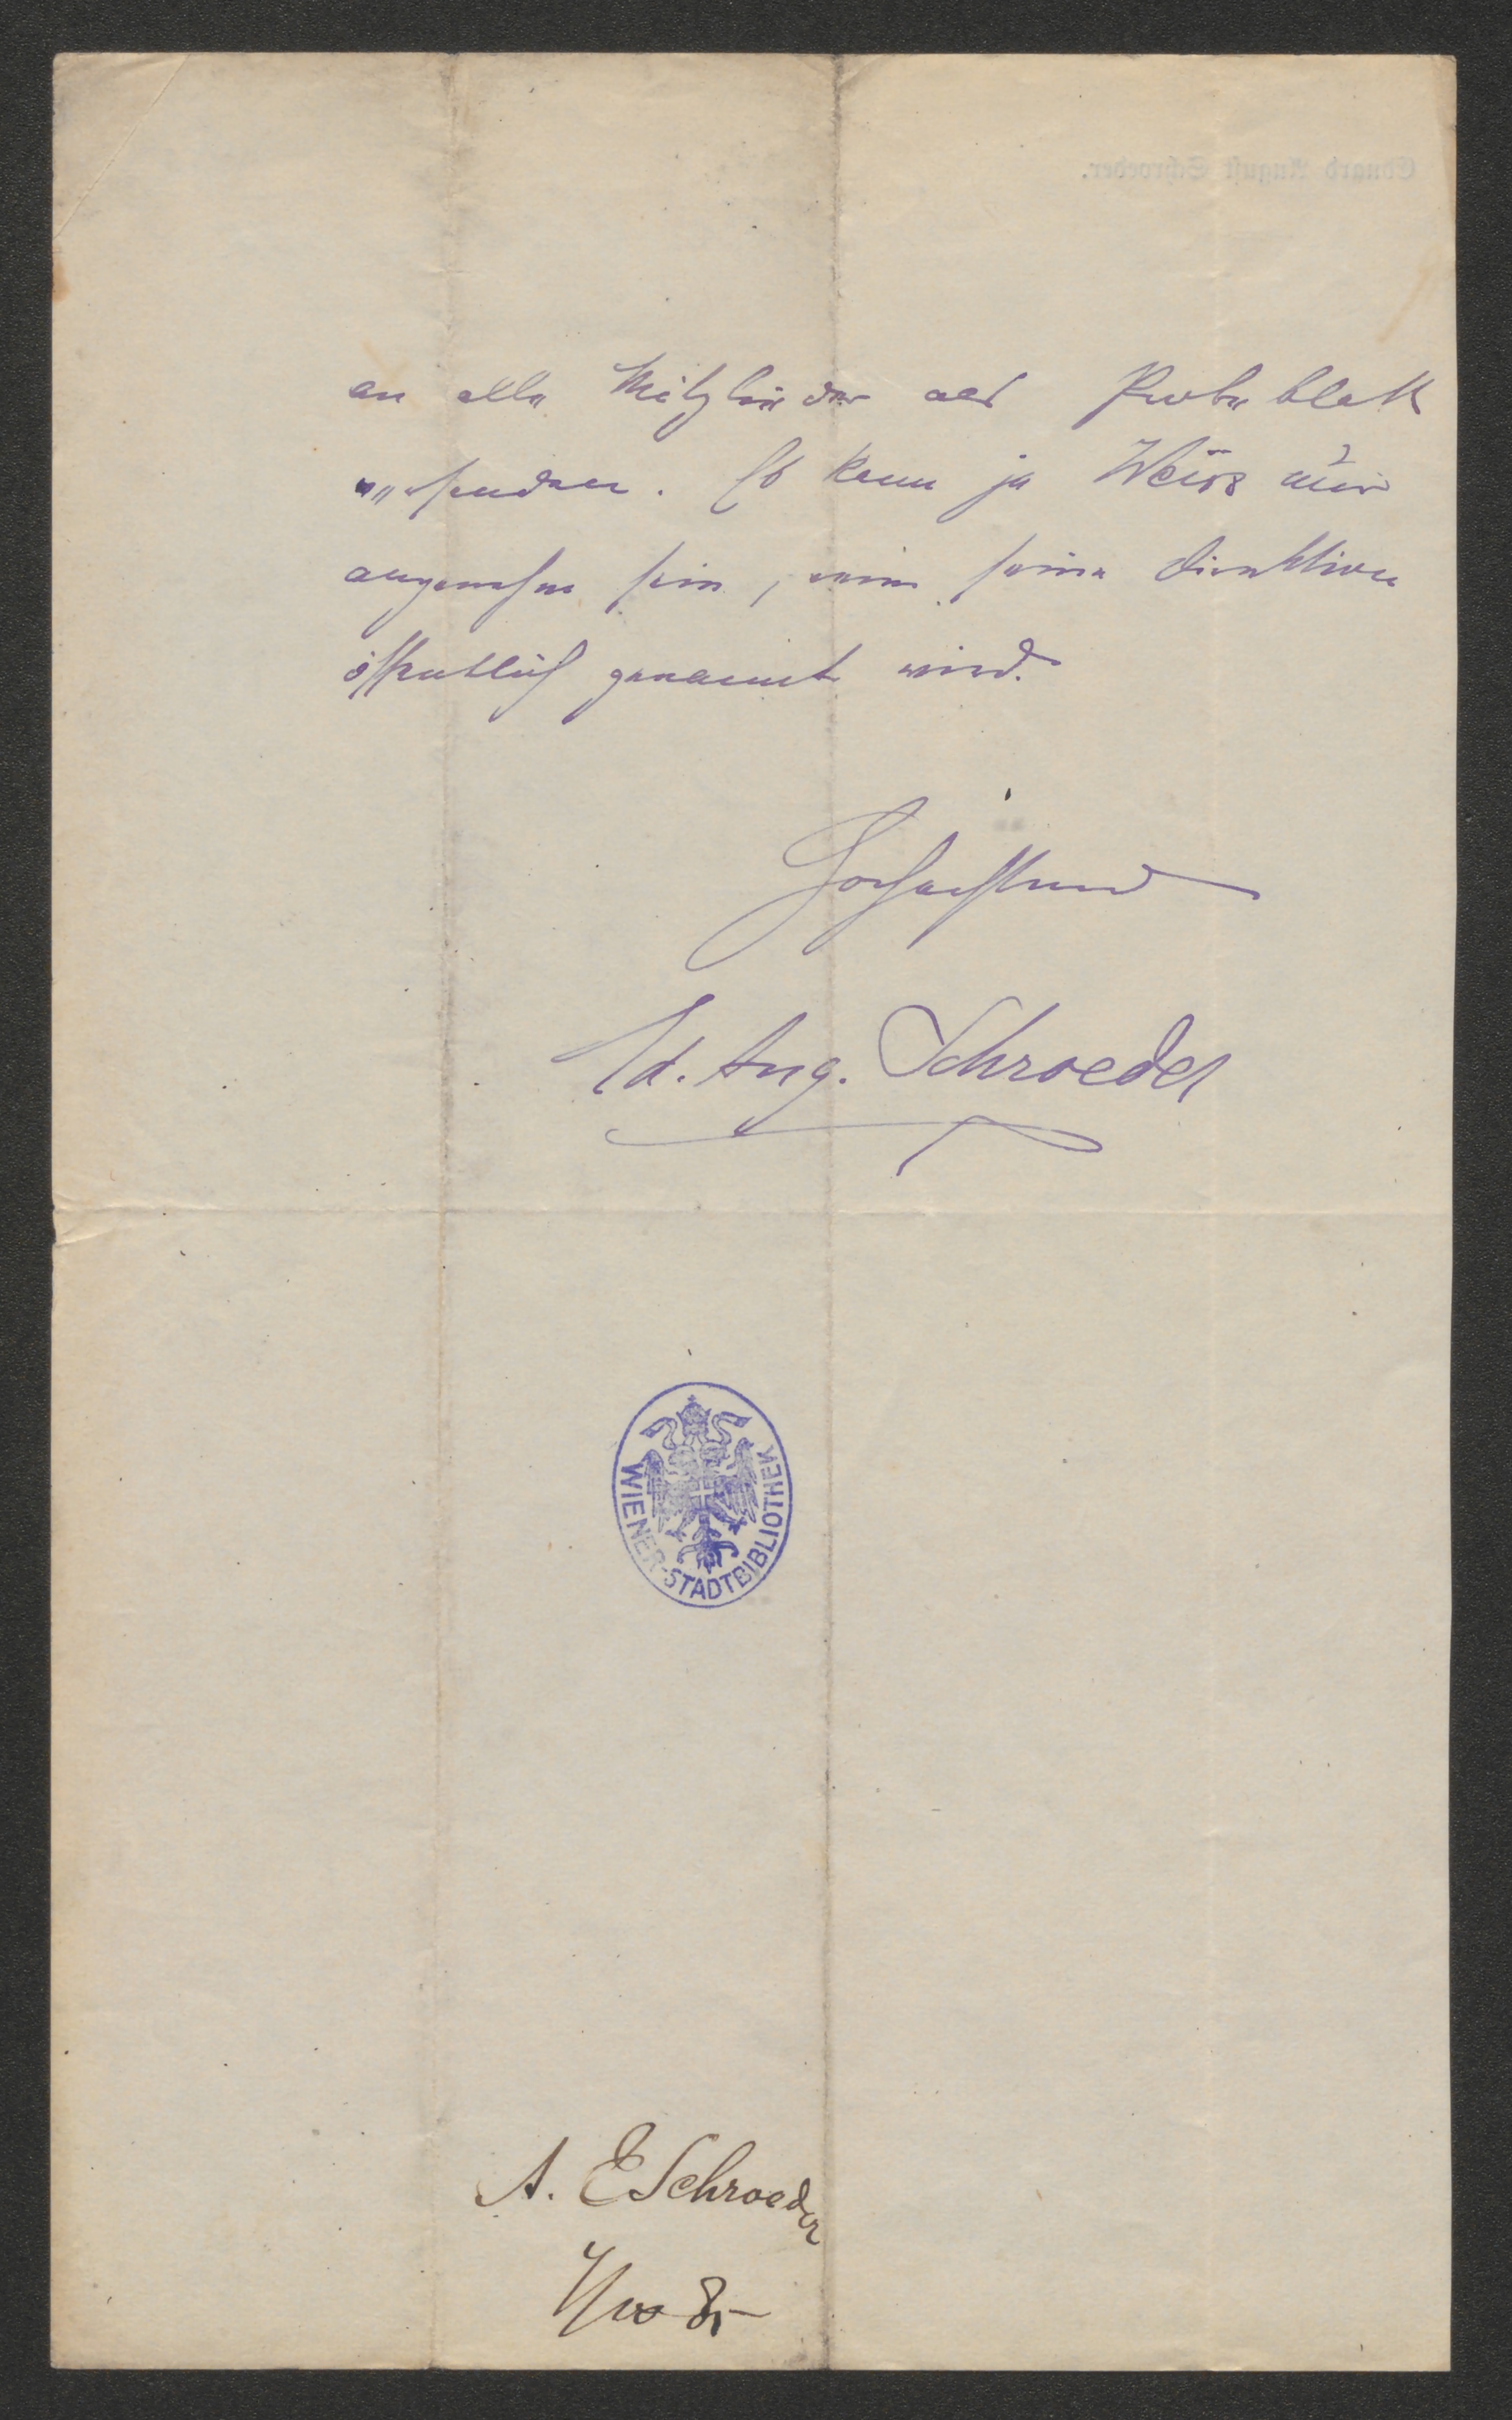 Eduard August Schroeder.
an alle Mitglieder als Probeblatt
senden. Es kann ja Weiss nur
angenehm sein, wenn seine
öffentlich genannt wird.
Hochachtend
Ed. Aug. Schroeder
WIENER-STADTBIBLIOTHEK
A. E Schroeder